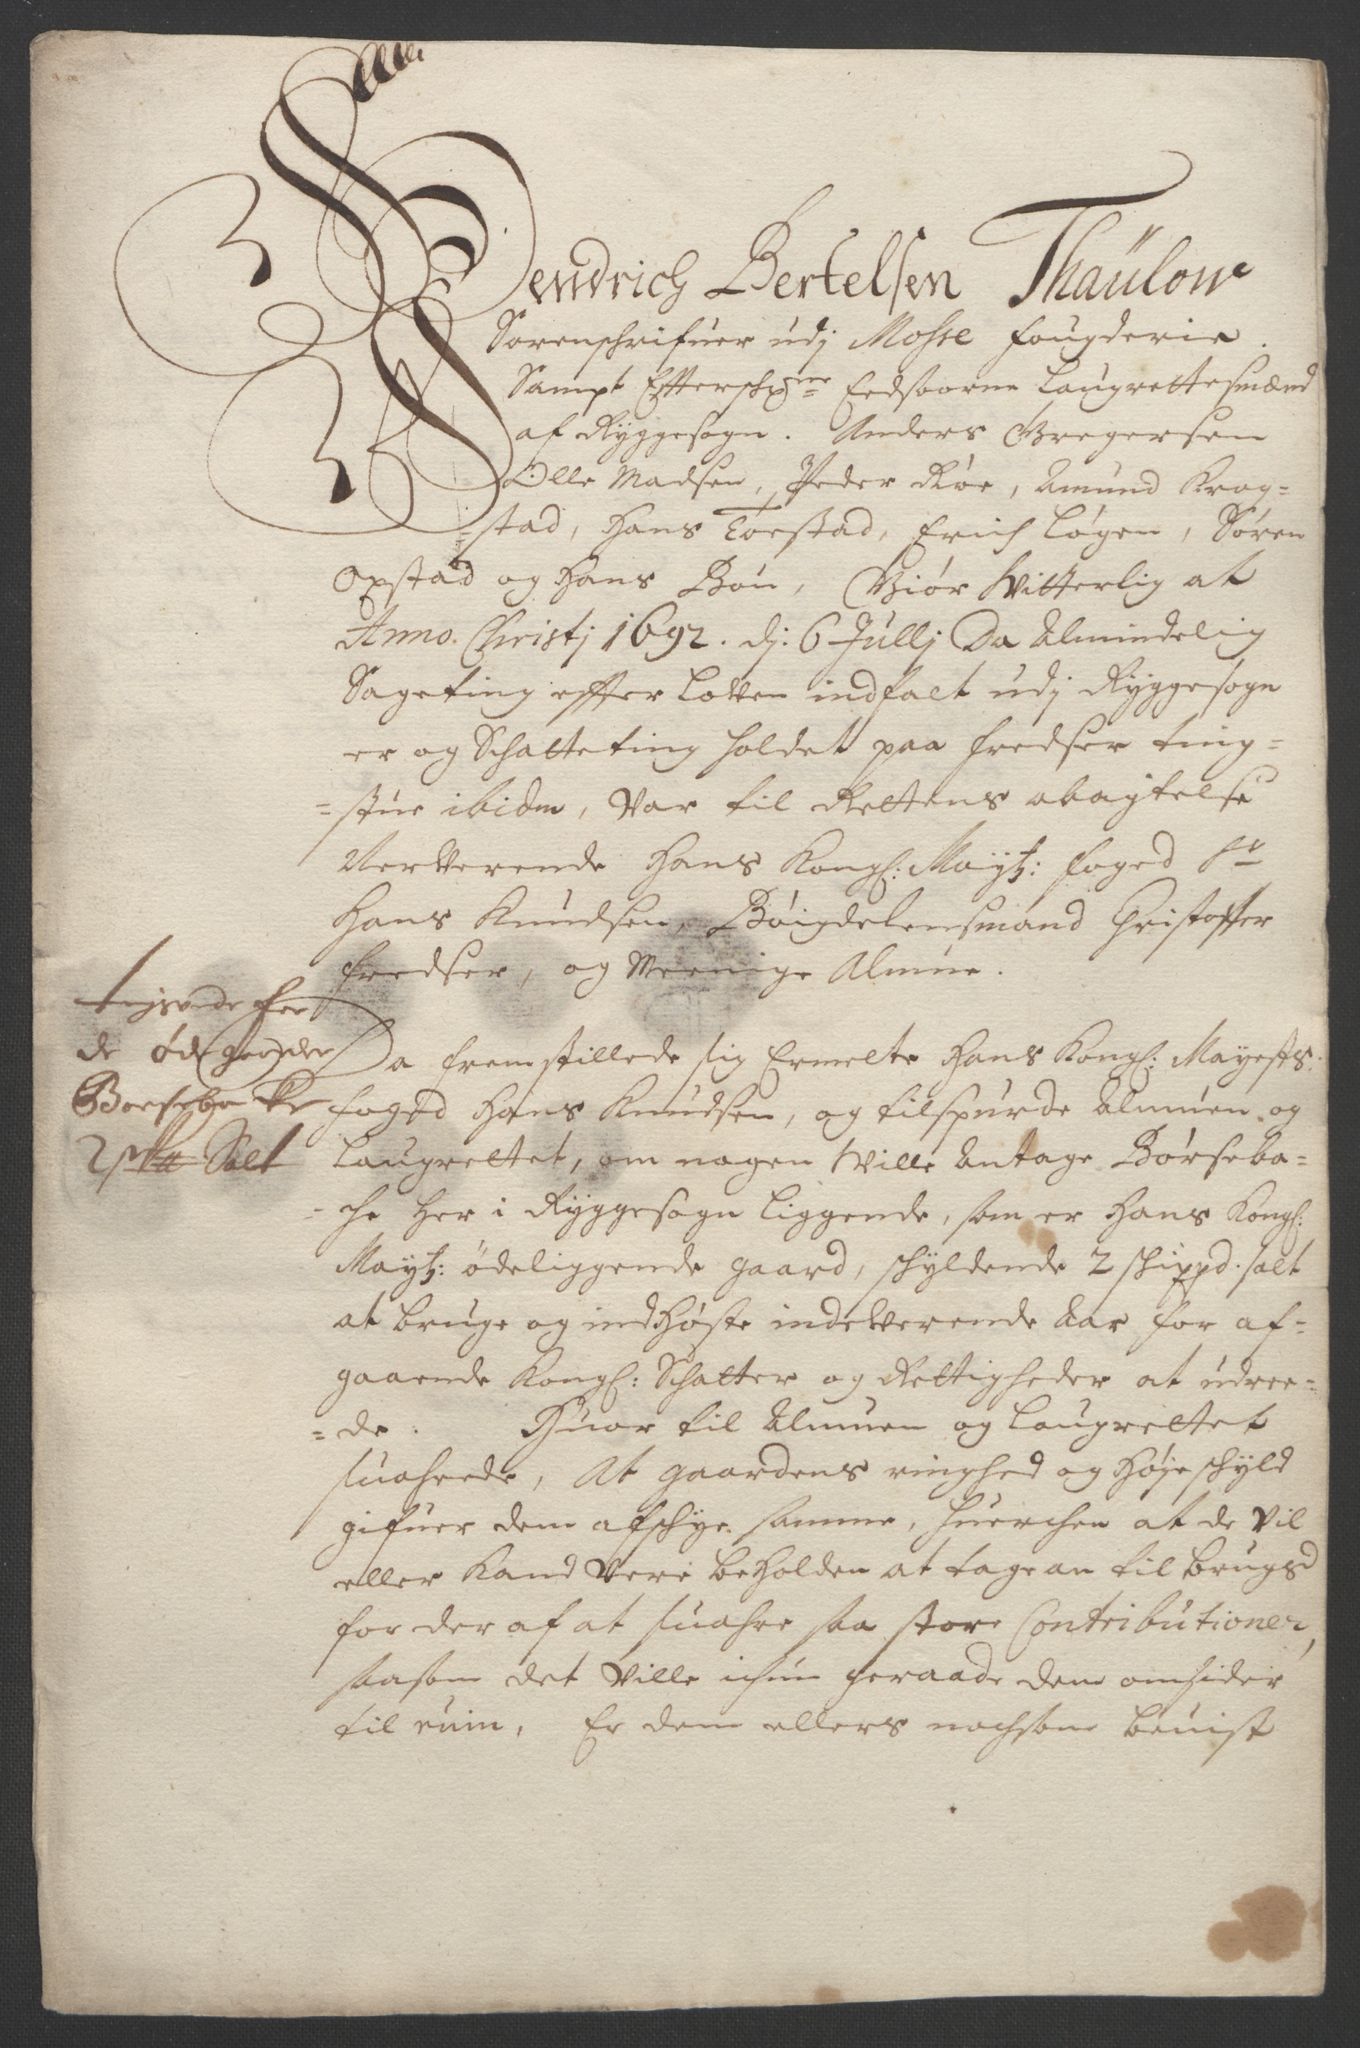 Hendrich Bertelsen Thaülow
Sorenschrifuer udj Mosse fougderie.
Sampt Effterschrne Eedsoorne Laugrettesmænd
af Ryggesogn. Anders Gregersen
Olle Madsen, Peder Röe, Amund Krog=
=stad, Hans Toestad, Erich Løgen, Søren
Opstad og Hans Bøn, Giör Witterlig at
Anno. Christj 1692. dj: 6 Jullj Da Almindelig
Sageting effter Loven indfalt udj Ryggesogn
er og Schatteting holdet paa fredser ting=
=stue ibidm, Var til Rettens abagtelse
Nerverende Hans Kongl: Mayts: foged Sr
Hans Knudsen, Böigdelensmand Christoffer
fredser, og Meenige Almue.
tingsvide for
de øde gaarder
Borsebache
2 Sk℔ Salt
Da fremstillede sig Ermelte Hans Kongl: Mayests:
foged Hans Knudsen, og tilspurde Almuen og
Laugrettet, om nogen Wille Antage Börseba=
=che her i Ryggesogn liggende, som er Hans Kongl:
Mayts: ödeliggende gaard, schyldende 2 schippd. salt
at bruge og indhøste indeverende Aar for af=
gaaende Kongl: Schatter og Rettigheder at udree=
=de. Huor til Almuen og Laugrettet
suarede, At gaardens ringhed og høje schyld
gifuer dem afschye samme, huerchen at de vil
eller Kand Vere beholden at tage an til brugs
for der af at suahre saa store Contributioner,
saasom det Ville ichun geraade dem omsider
til ruin, Er dem ellers nochsom beuist